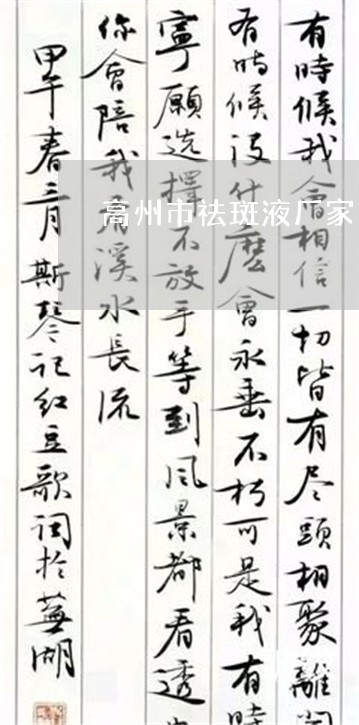 有時候我會相信一切皆有尽頭相聚離
有時候没什麽會永垂不朽可是我有時
寧願选擇不放手等到风景都看透
你會陪我看溪水長流
甲午春三月斯琴记红豆歌词於蕪湖
高州市祛斑液厂家